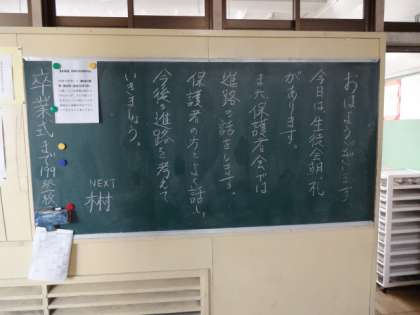 おはようございます
今日は生徒会朝礼
があります。
また保護者会では
進路の話をします。
保護者の方とよく話し、
今後の進路を考えて
いきましょう。
NEXT
樹
卒業式まで199登校